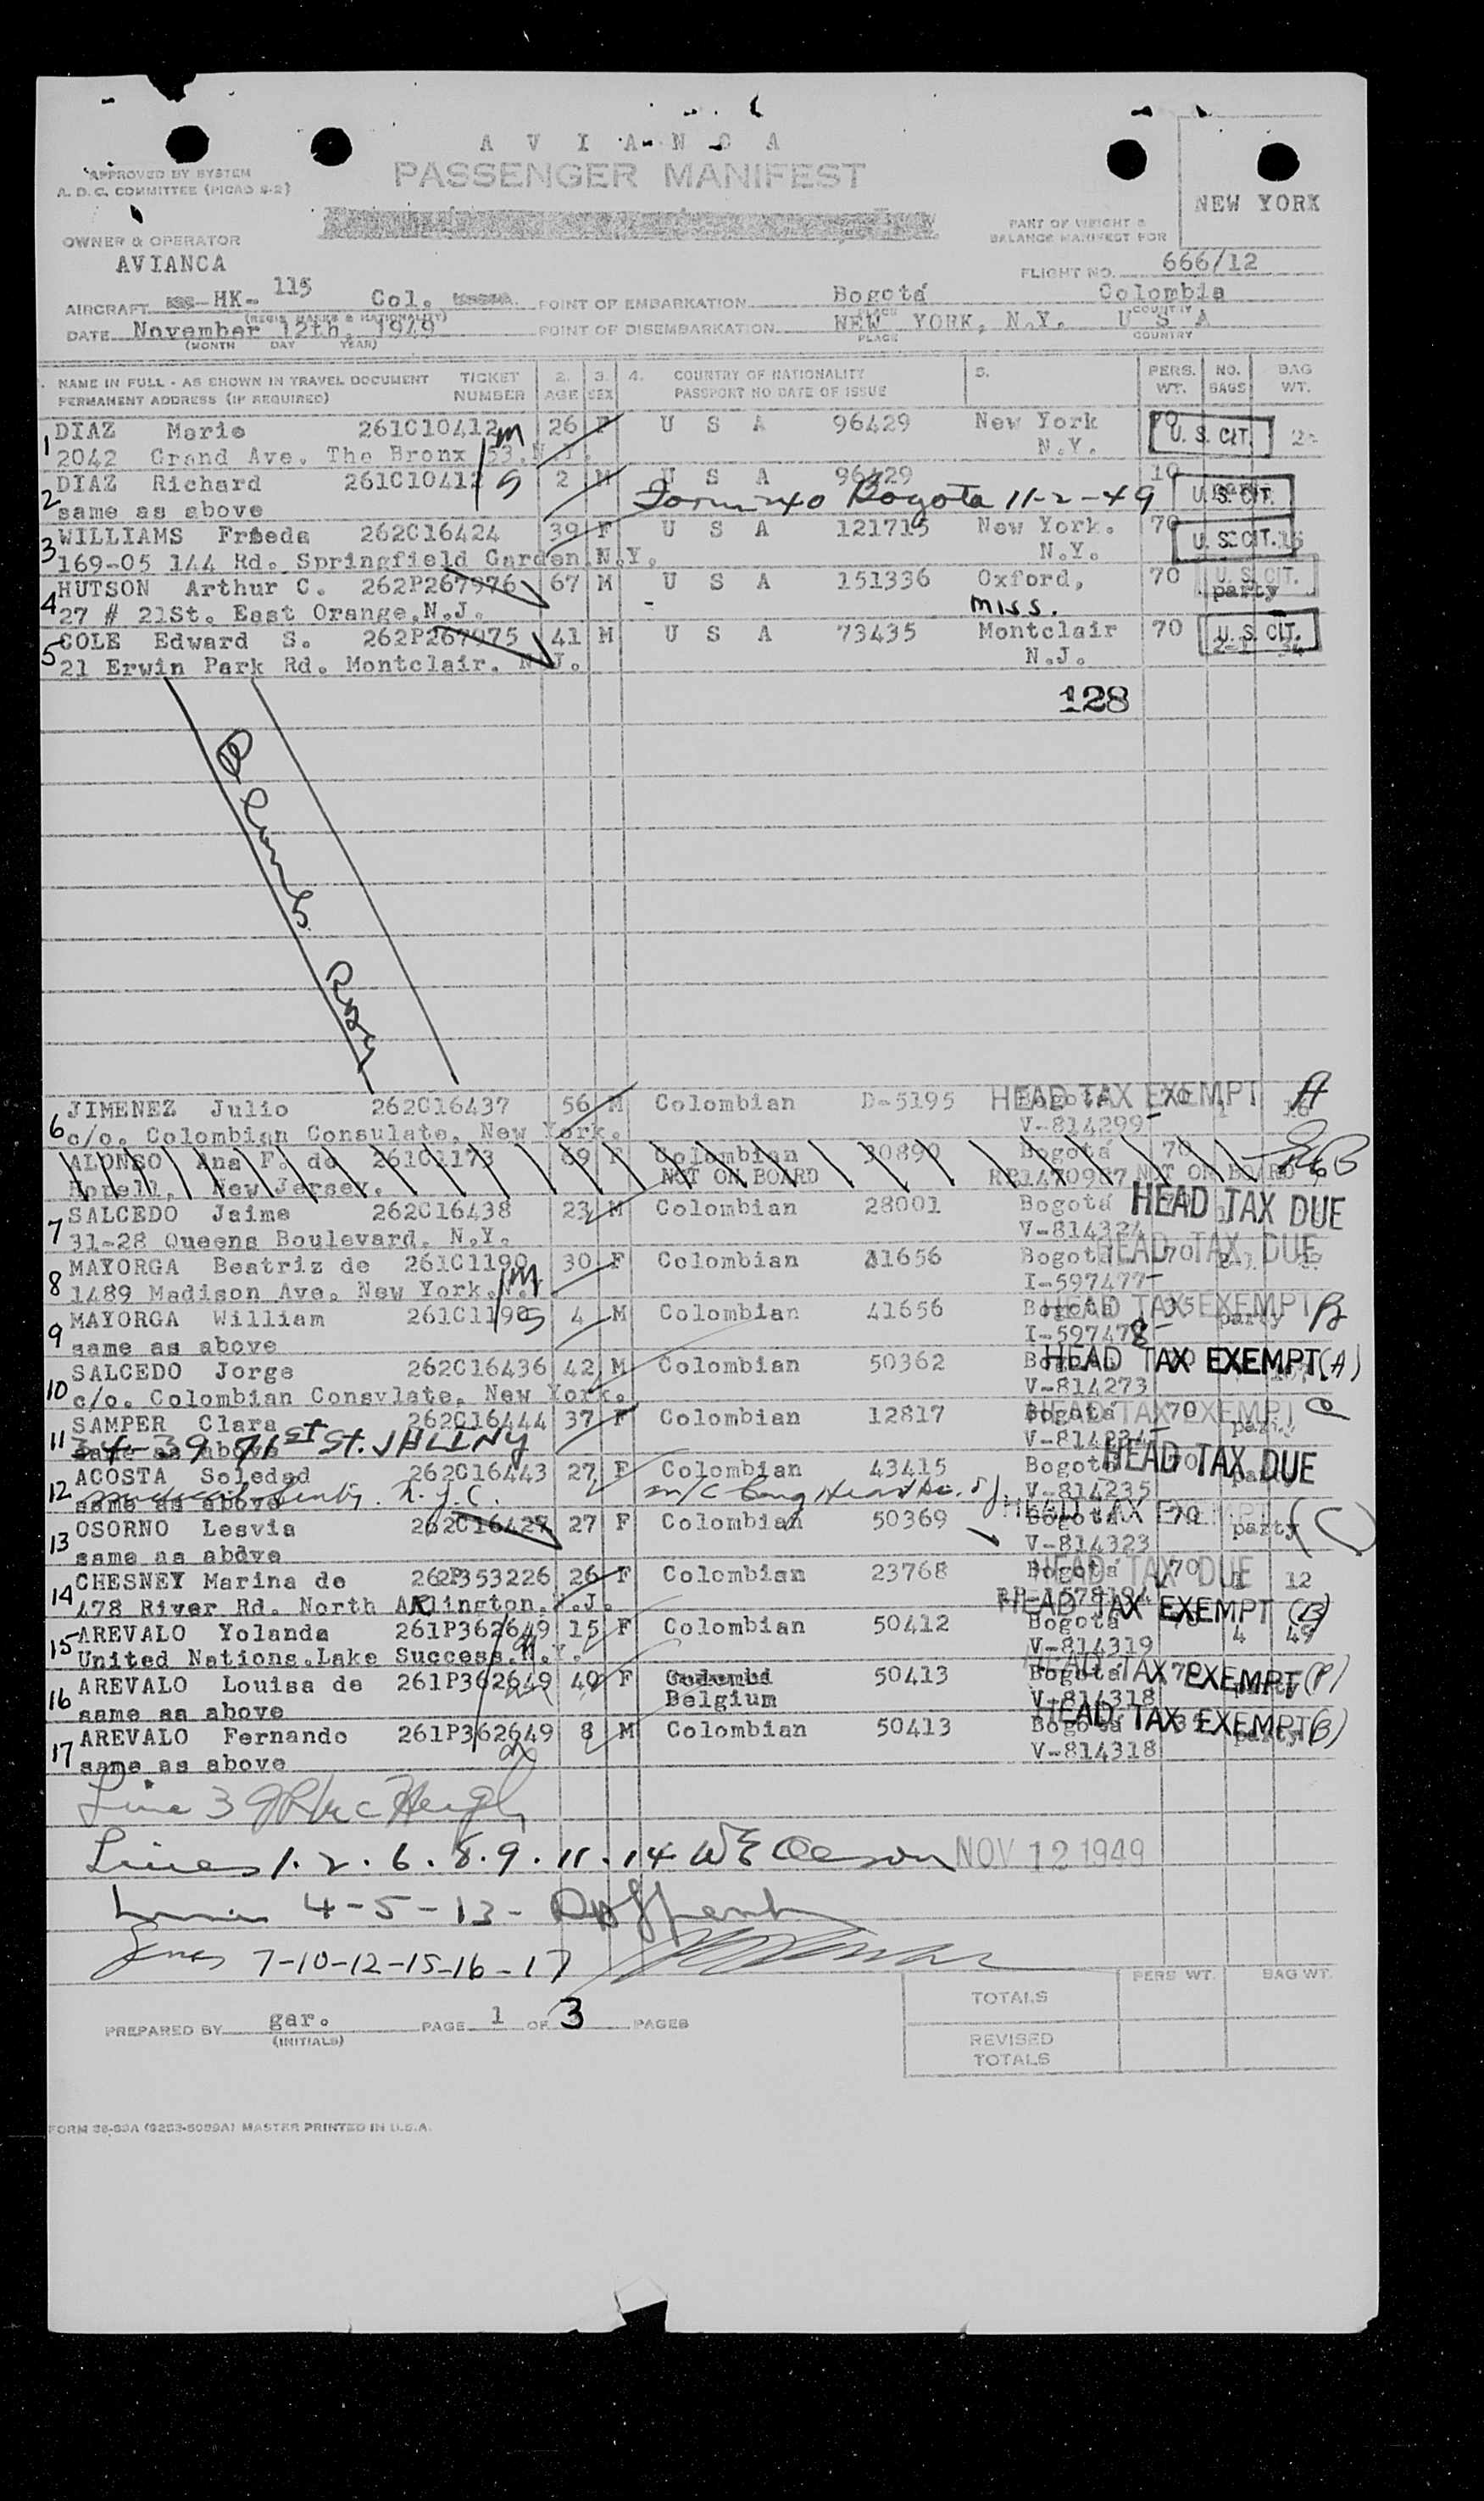 A V I A N C A
PASSENGER MANIFEST
APPROVED BY SYSTEM
A. D. C. COMMITTEE (PICAO 9-2)
NEW YORK
OWNER & OPERATOR
AVIANCA
PART OF WEIGHT &
BALANCE MANIFEST FOR
FLIGHT NO. 666/12
AIRCRAFT HK- 115 Col. POINT OF EMBARKATION Bogotá Colombia
(REGIS. MARKS & NATIONALITY) PLACE COUNTRY
DATE November 12th, 1949 POINT OF DISEMBARKATION NEW YORK, N.Y. U S A
(MONTH DAY YEAR) PLACE COUNTRY
NAME IN FULL - AS SHOWN IN TRAVEL DOCUMENT TICKET 2. 3. 4. COUNTRY OF NATIONALITY 5. PERS. NO. BAG
PERMANENT ADDRESS (IF REQUIRED) NUMBER AGE SEX PASSPORT NO DATE OF ISSUE WT. BAGS WT.
1 DIAZ Marie 261C10412 m 26 F U S A 96429 New York 70 U. S. CIT.
2042 Grand Ave. The Bronx 53.N.Y. N.Y.
2 DIAZ Richard 261C10412 S 2 M U S A 96429 10 U. S. CIT.
same as above Form 240 Bogota 11-2-49
3 WILLIAMS Frieda 262C16424 39 F U S A 121715 New York. 70 U. S. CIT. 16
169-05 144 Rd. Springfield Garden N.Y. N.Y.
4 HUTSON Arthur C. 262P267976 67 M U S A 151336 Oxford, 70 U. S. CIT. party
27 # 21St. East Orange,N.J. miss.
5 COLE Edward S. 262P267975 41 M U S A 73435 Montclair 70 U. S. CIT.
21 Erwin Park Rd. Montclair. N.J. N.J.
128
6 JIMENEZ Julio 262C16437 56 M Colombian D-5195 Bogotá 70 HEAD TAX EXEMPT A
c/o. Colombian Consulate, New York. V-814299
ALONSO Ana F. de 261C1173 69 F Colombian 30890 Bogotá 70
Hopell, New Jersey. NOT ON BOARD RP1470967 NOT ON BOARD
7 SALCEDO Jaime 262C16438 23 M Colombian 28001 Bogotá HEAD TAX DUE
31-28 Queens Boulevard, N.Y. V-814324
8 MAYORGA Beatriz de 261C1190 m 30 F Colombian 41656 Bogotá 70 HEAD TAX DUE
1489 Madison Ave. New York.N.Y I-597477
9 MAYORGA William 261C1190 S 4 M Colombian 41656 Bogotá 35 party HEAD TAX EXEMPT B
same as above I-597478
10 SALCEDO Jorge 262C16436 42 M Colombian 50362 Bogotá HEAD TAX EXEMPT (A)
c/o. Colombian Consvlate, New York. V-814273
11 SAMPER Clara 262C16444 37 F Colombian 12817 Bogotá 70 party HEAD TAX EXEMPT C
same as above 34-39 71st St. J HL1 NY V-814234
12 ACOSTA Soledad 262C16443 27 F Colombian 43415 Bogotá 70 HEAD TAX DUE
same as above N.Y.C. V-814235
13 OSORNO Lesvia 262C16427 27 F Colombian 50369 Bogotá 70 party HEAD TAX EXEMPT (C)
same as above V-814323
14 CHESNEY Marina de 262P353226 26 F Colombian 23768 Bogotá 70 1 12 HEAD TAX DUE
478 River Rd. North Arlington.N.J.
15 AREVALO Yolanda 261P362649 15 F Colombian 50412 Bogotá 70 4 49 HEAD TAX EXEMPT (B)
United Nations.Lake Success.N.Y. V-814319
16 AREVALO Louisa de 261P362649 40 F Belgium 50413 Bogotá 70 HEAD TAX EXEMPT
same as above V-814318
17 AREVALO Fernando 261P362649 8 M Colombian 50413 Bogotá 35 party HEAD TAX EXEMPT (B)
same as above V-814318
Line 3
Lines 1. 2. 6. 8. 9. 11. 14 NOV 12 1949
Lines 4-5-13-
Lines 7-10-12-15-16-17
PERS WT. BAG WT.
TOTALS
REVISED
TOTALS
PREPARED BY gar. PAGE 1 OF 3 PAGES
(INITIALS)
MASTER PRINTED IN U.S.A.